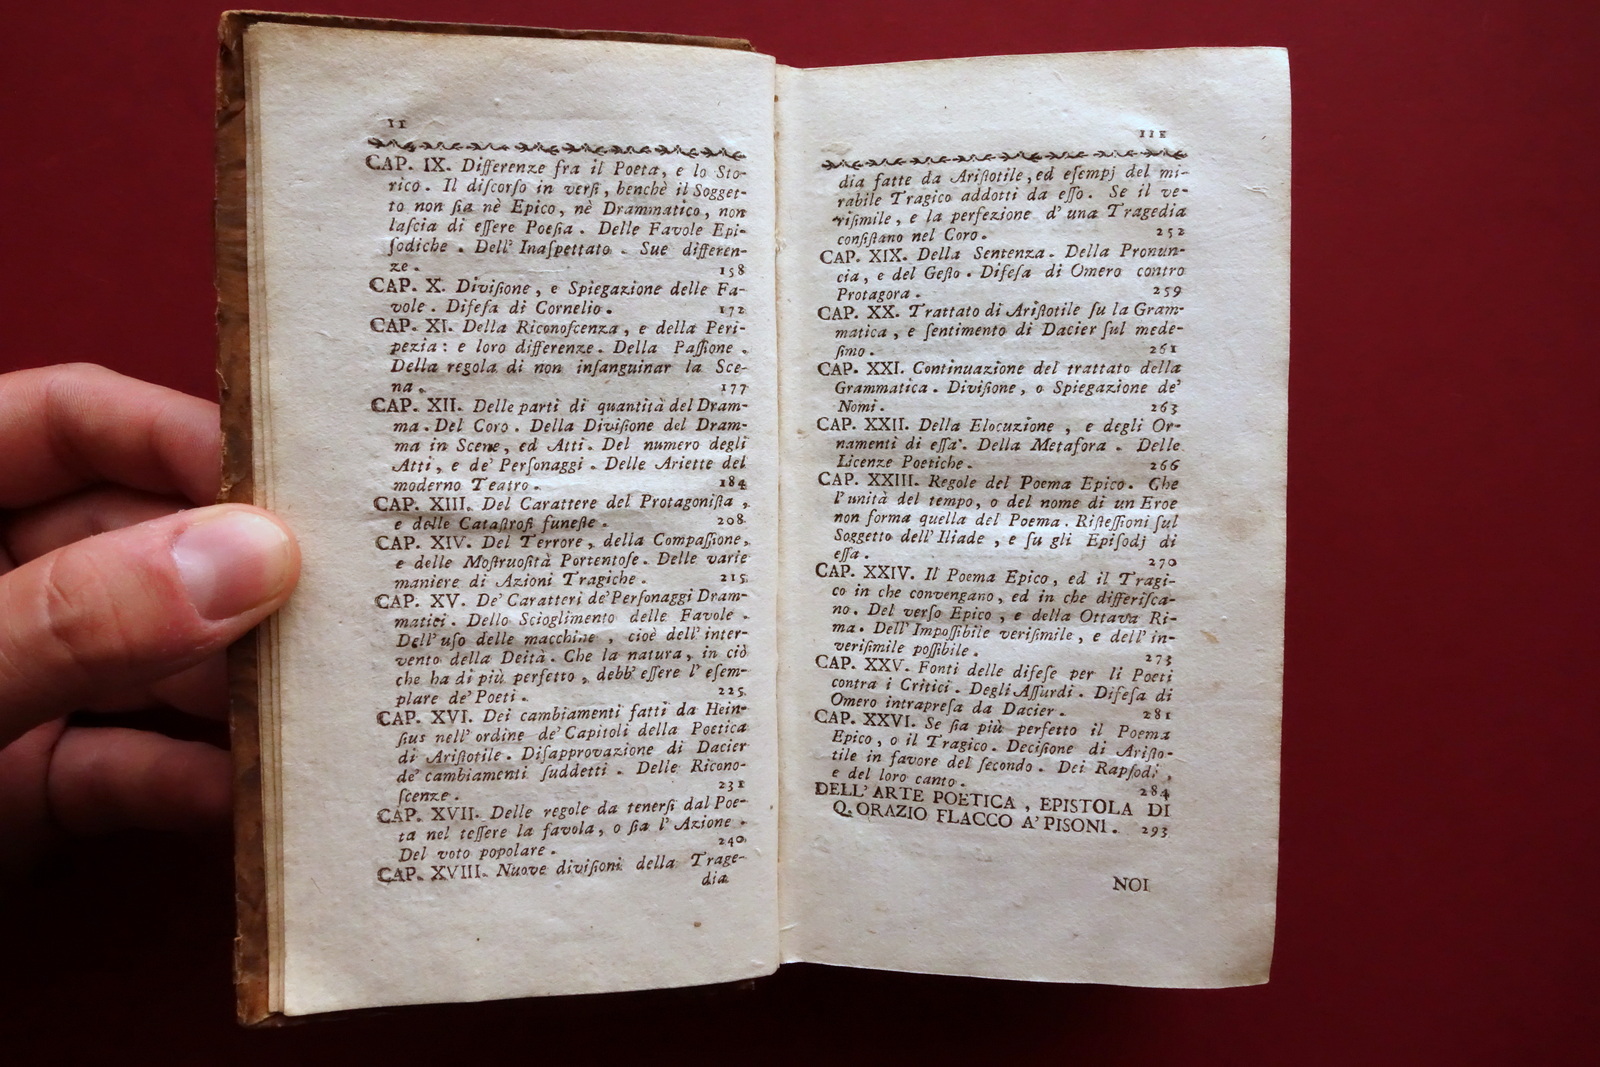 II
CAP. IX. Differenze fra il Poeta, e lo Sto-
rico. Il diſcorſo in verſi, benchè il Sogget-
to non ſia nè Epico, nè Drammatico, non
laſcia di eſſere Poeſia. Delle Favole Epi-
ſodiche. Dell' Inaſpettato. Sue differen-
ze. 158
CAP. X. Diviſione, e Spiegazione delle Fa-
vole. Difeſa di Cornelio. 172
CAP. XI. Della Riconoſcenza, e della Peri-
pezia: e loro differenze. Della Paſſione.
Della regola di non inſanguinar la Sce-
na. 177
CAP. XII. Delle parti di quantità del Dram-
ma. Del Coro. Della Diviſione del Dram-
ma in Scene, ed Atti. Del numero degli
Atti, e de' Perſonaggi. Delle Ariette del
moderno Teatro. 184
CAP. XIII. Del Carattere del Protagoniſta,
e delle Cataſtrofi funeſte. 208
CAP. XIV. Del Terrore, della Compaſſione,
e delle Moſtruoſità Portentoſe. Delle varie
maniere di Azioni Tragiche. 215
CAP. XV. De' Caratteri de' Perſonaggi Dram-
matici. Dello Scioglimento delle Favole.
Dell' uſo delle macchine, cioè dell' inter-
vento della Deità. Che la natura, in ciò
che ha di più perfetto, debb' eſſere l' eſem-
plare de' Poeti. 225
CAP. XVI. Dei cambiamenti fatti da Hein-
ſius nell' ordine de' Capitoli della Poetica
di Ariſtotile. Diſapprovazione di Dacier
de' cambiamenti ſuddetti. Delle Ricono-
ſcenze. 231
CAP. XVII. Delle regole da tenerſi dal Poe-
ta nel teſſere la favola, o ſia l' Azione.
Del voto popolare. 240
CAP. XVIII. Nuove diviſioni della Trage-
dia
III
dia fatte da Ariſtotile, ed eſempj del mi-
rabile Tragico addotti da eſſo. Se il ve-
riſimile, e la perfezione d' una Tragedia
conſiſtano nel Coro. 252
CAP. XIX. Della Sentenza. Della Pronun-
cia, e del Geſto. Difeſa di Omero contro
Protagora. 259
CAP. XX. Trattato di Ariſtotile ſu la Gram-
matica, e ſentimento di Dacier ſul mede-
ſimo. 261
CAP. XXI. Continuazione del trattato della
Grammatica. Diviſione, o Spiegazione de'
Nomi. 263
CAP. XXII. Della Elocuzione, e degli Or-
namenti di eſſa. Della Metafora. Delle
Licenze Poetiche. 266
CAP. XXIII. Regole del Poema Epico. Che
l' unità del tempo, o del nome di un Eroe
non forma quella del Poema. Rifleſſioni ſul
Soggetto dell' Iliade, e ſu gli Epiſodj di
eſſa. 270
CAP. XXIV. Il Poema Epico, ed il Tragi-
co in che convengano, ed in che differiſca-
no. Del verſo Epico, e della Ottava Ri-
ma. Dell' Impoſſibile veriſimile, e dell' in-
veriſimile poſſibile. 273
CAP. XXV. Fonti delle difeſe per li Poeti
contra i Critici. Degli Aſſurdi. Difeſa di
Omero intrapreſa da Dacier. 281
CAP. XXVI. Se ſia più perfetto il Poema
Epico, o il Tragico. Deciſione di Ariſto-
tile in favore del ſecondo. Dei Rapſodi,
e del loro canto. 284
DELL' ARTE POETICA, EPISTOLA DI
Q. ORAZIO FLACCO A' PISONI. 293
NOI